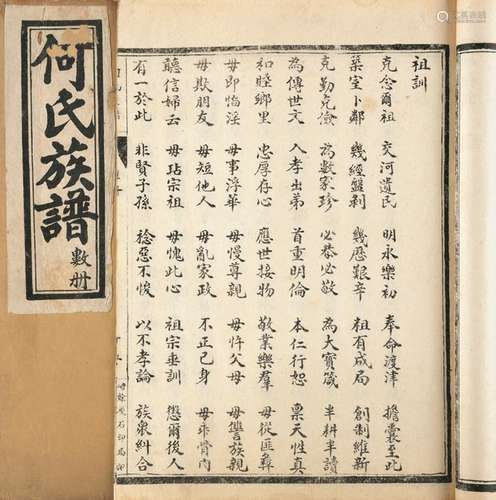 祖訓
克念爾祖 交河遺民 明永樂初 奉命渡津 擔囊至此
築室卜鄰 幾經盤剥 幾歷艱辛 祖有成局 創制維新
克勤克儉 為數家珍 必恭必敬 為大寶箴 半耕半讀
為傳世文 入孝出弟 首重明倫 本仁行恕 稟天性真
和睦鄉里 忠厚存心 應世接物 敬業樂羣 毋從匪彝
毋即慆淫 毋事浮華 毋慢尊親 毋忤父母 毋讐族親
毋欺朋友 毋短他人 毋亂家政 不正己身 毋乖骨肉
聽信婦云 毋玷宗祖 毋愧此心 祖宗垂訓 懲爾後人
有一於此 非賢子孫 稔惡不悛 以不孝論 族衆糾合
何氏族譜
數册